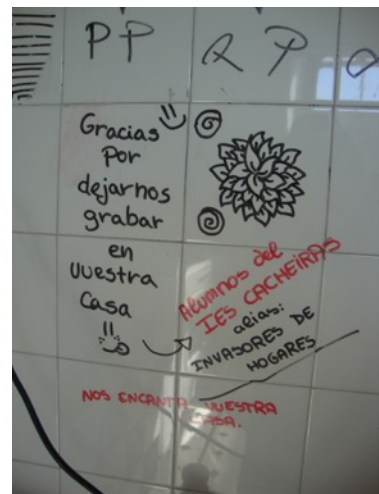 PP RP
Gracias
Por
dejarnos
grabar
en
vuestra
Casa
Alumnos del
IES CACHEIRAS
alias:
INVASORES DE
HOGARES
NOS ENCANTA VUESTRA
CASA.